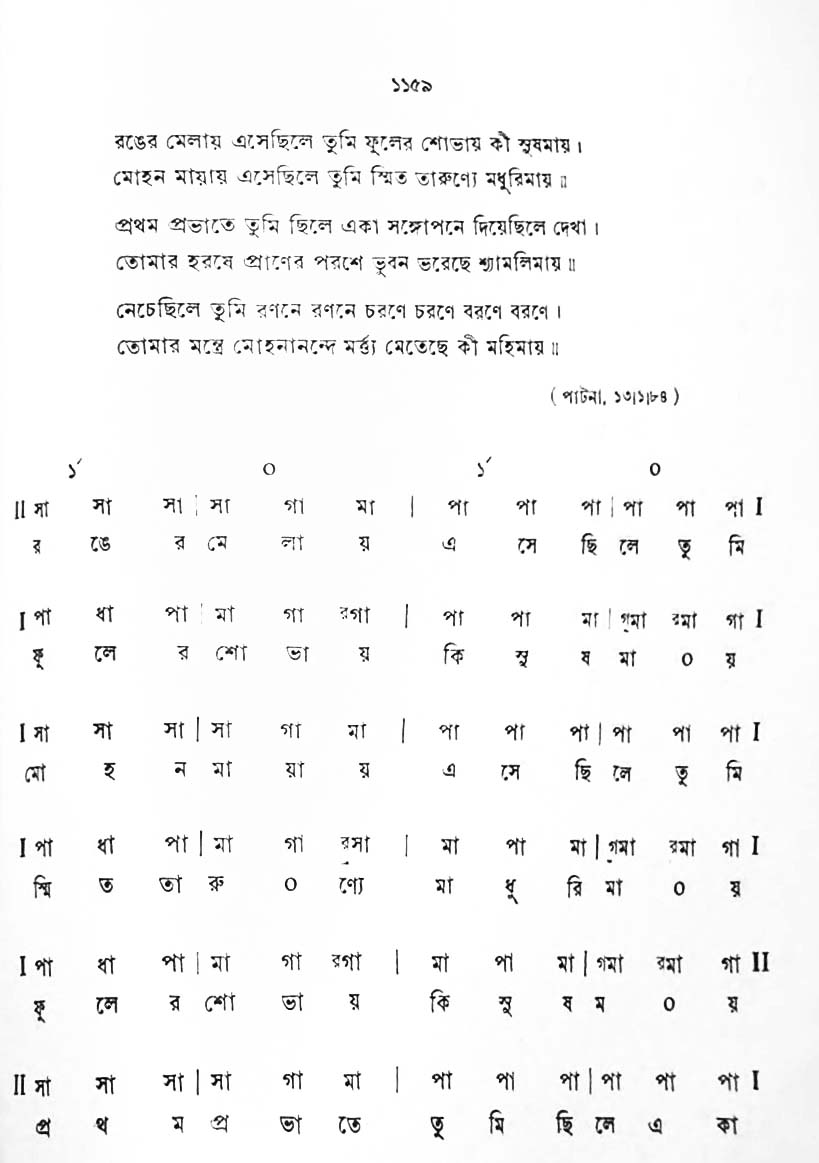 ১১৫৯
রঙের মেলায় এসেছিলে তুমি ফুলের শোভায় কী সুষমায়।
মোহন মায়ায় এসেছিলে তুমি স্মিত তারুণ্যে মধুরিমায়॥
প্রথম প্রভাতে তুমি ছিলে একা সঙ্গোপনে দিয়েছিলে দেখা।
তোমার হরষে প্রাণের পরশে ভুবন ভরেছে শ্যামলিমায়॥
নেচেছিলে তুমি রণনে রণনে চরণে চরণে বরণে বরণে।
তোমার মন্ত্রে মোহনানন্দে মর্ত্ত্য মেতেছে কী মহিমায়॥
( পাটনা, ১৩।১।৮৪ )
১´ ০ ১´ ০
II সা সা সা | সা গা মা | পা পা পা | পা পা পা I
র ঙে র মে লা য় এ সে ছি লে তু মি
I পা ধা পা | মা গা রগা | পা পা মা | গ়মা রমা গা I
ফু লে র শো ভা য় কি সু ষ মা ০ য়
I সা সা সা | সা গা মা | পা পা পা | পা পা পা I
মো হ ন মা য়া য় এ সে ছি লে তু মি
I পা ধা পা | মা গা রসা | মা পা মা | গ়মা রমা গা I
স্মি ত তা রু ০ ণ্যে মা ধু রি মা ০ য়
I পা ধা পা | মা গা রগা | মা পা মা | গমা রমা গা II
ফু লে র শো ভা য় কি সু ষ ম ০ য়
II সা সা সা | সা গা মা | পা পা পা | পা পা পা I
প্র থ ম প্র ভা তে তু মি ছি লে এ কা